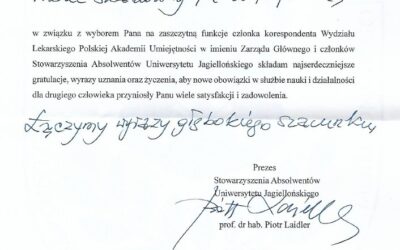 w związku z wyborem Pana na zaszczytną funkcje członka korespondenta Wydziału
Lekarskiego Polskiej Akademii Umiejętności w imieniu Zarządu Głównego i członków
Stowarzyszenia Absolwentów Uniwersytetu Jagiellońskiego składam najserdeczniejsze
gratulacje, wyrazy uznania oraz życzenia, aby nowe obowiązki w służbie nauki i działalności
dla drugiego człowieka przyniosły Panu wiele satysfakcji i zadowolenia.
Łączymy wyrazy głębokiego szacunku,
Prezes
Stowarzyszenia Absolwentów
Uniwersytetu Jagiellońskiego
prof. dr hab. Piotr Laidler